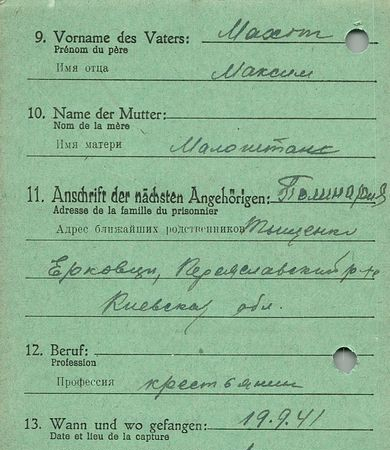 9. Vorname des Vaters:
Prénom du père
Имя отца Максим
10. Name der Mutter:
Nom de la mère
Имя матери
11. Anschrift der nächsten Angehörigen:
Adresse de la famille du prisonnier
Адрес ближайших родственников Тыщенко
Ерковцы, Переяславский р-н
Киевская обл.
12. Beruf:
Profession
Профессия крестьянин
13. Wann und wo gefangen: 19.9.41
Date et lieu de la capture